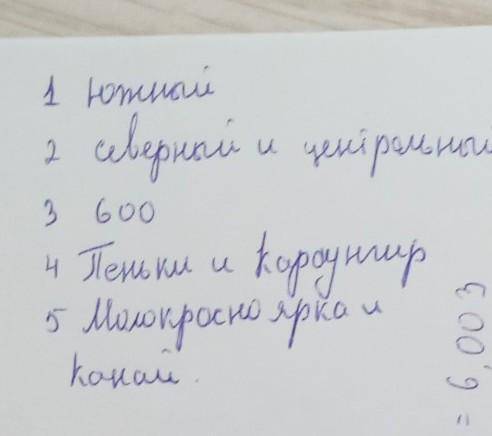 1 Южный
2 северный и центральный
3 600
4 Пеньки и Караунгир
5 Малокрасноярка и
Канай.
= 6,003